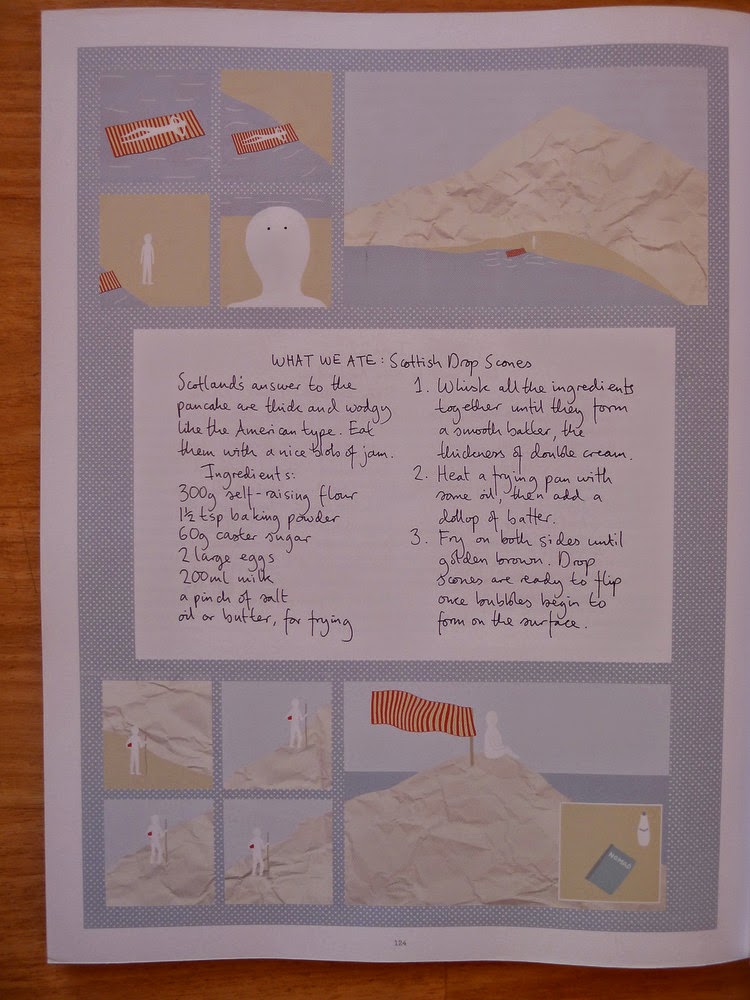 WHAT WE ATE: Scottish Drop Scones
Scotland's answer to the
pancake are thick and wodgy
like the American type. Eat
them with a nice blob of jam.
Ingredients:
300g self-raising flour
1½ tsp baking powder
60g caster sugar
2 large eggs
200ml milk
a pinch of salt
oil or butter, for frying
1. Whisk all the ingredients
together until they form
a smooth batter, the
thickness of double cream.
2. Heat a frying pan with
some oil, then add a
dollop of batter.
3. Fry on both sides until
golden brown. Drop
scones are ready to flip
once bubbles begin to
form on the surface.
NOMAD
124